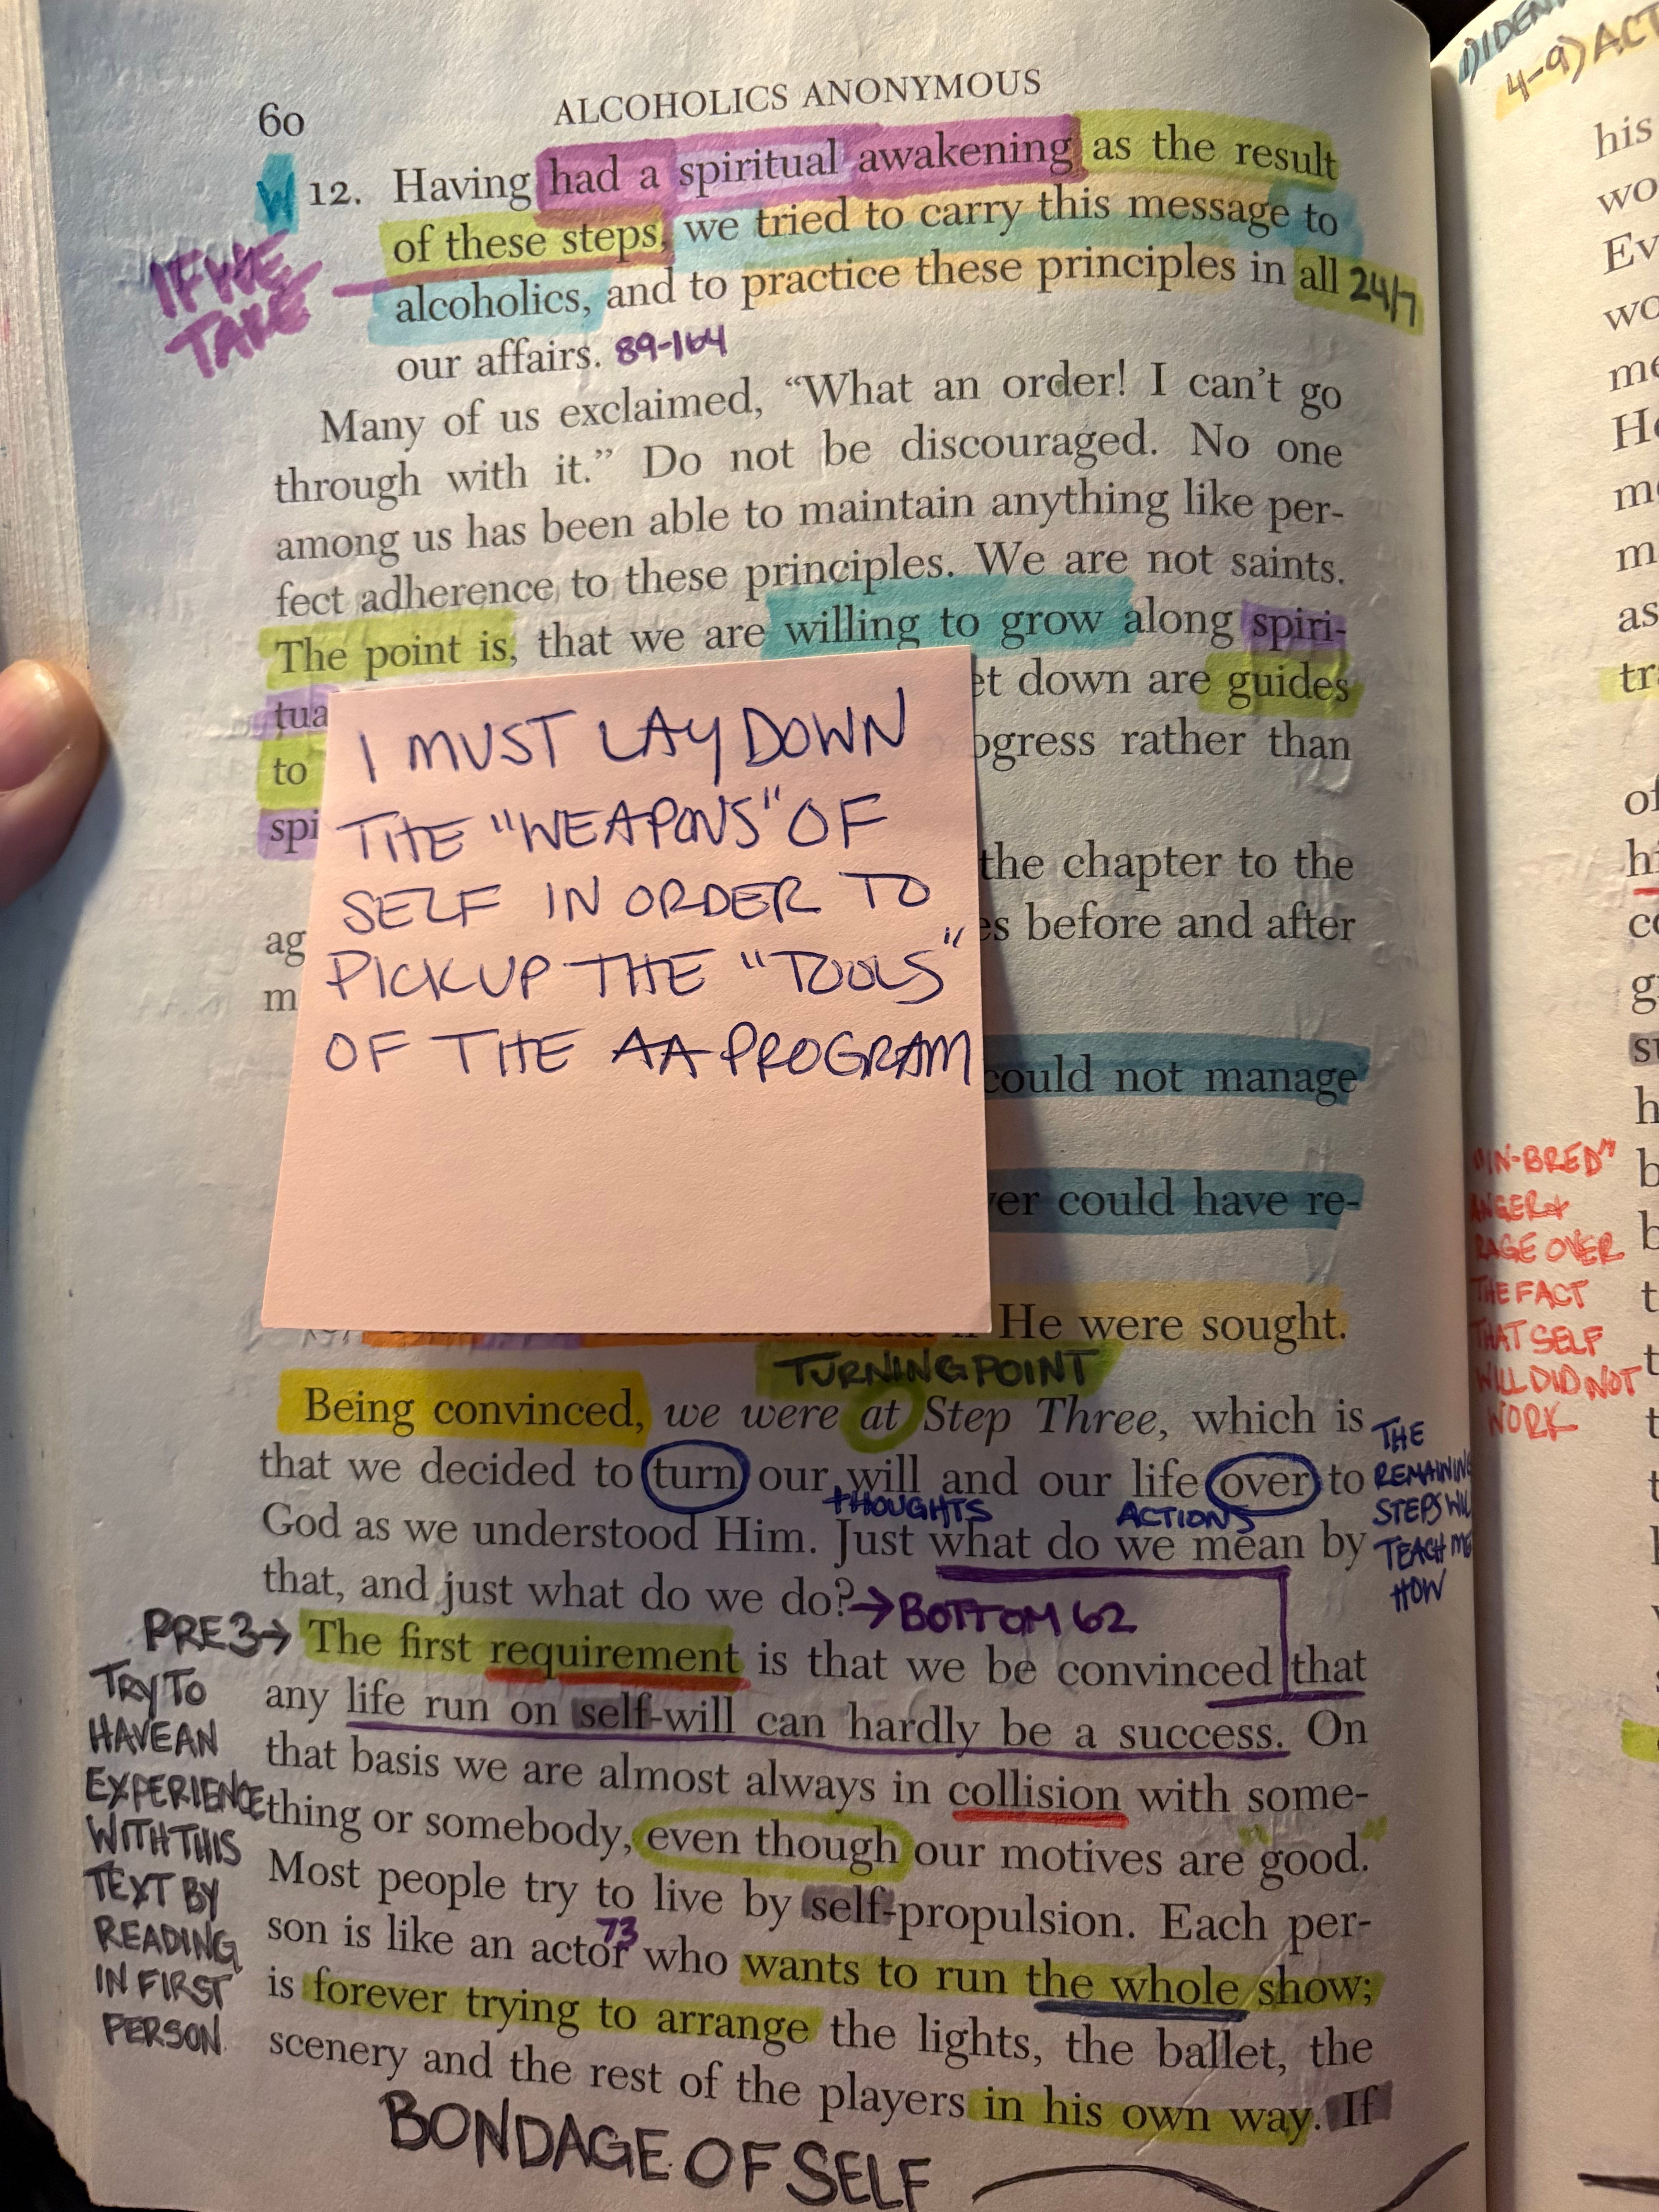 60
ALCOHOLICS ANONYMOUS
W 12. Having had a spiritual awakening as the result
of these steps, we tried to carry this message to
IF WE
TAKE
alcoholics, and to practice these principles in all 24/7
our affairs. 89-164
Many of us exclaimed, “What an order! I can’t go
through with it.” Do not be discouraged. No one
among us has been able to maintain anything like per-
fect adherence to these principles. We are not saints.
The point is, that we are willing to grow along spiri-
tua
et down are guides
to
ogress rather than
spi
the chapter to the
ag
es before and after
m
could not manage
er could have re-
He were sought.
I MUST LAY DOWN
THE "WEAPONS" OF
SELF IN ORDER TO
PICK UP THE "TOOLS"
OF THE AA PROGRAM
TURNING POINT
Being convinced, we were at Step Three, which is
that we decided to turn our will and our life over to
THOUGHTS ACTIONS
God as we understood Him. Just what do we mean by
that, and just what do we do? → BOTTOM 62
THE
REMAINING
STEPS WIL
TEACH ME
HOW
PRE 3 → The first requirement is that we be convinced that
any life run on self-will can hardly be a success. On
that basis we are almost always in collision with some-
thing or somebody, even though our motives are "good."
Most people try to live by self-propulsion. Each per-
73
son is like an actor who wants to run the whole show;
is forever trying to arrange the lights, the ballet, the
scenery and the rest of the players in his own way. If
TRY TO
HAVE AN
EXPERIENCE
WITH THIS
TEXT BY
READING
IN FIRST
PERSON
BONDAGE OF SELF
1) IDEN
4-9) ACT
his
wo
Ev
wo
me
He
mo
m
as
tra
of
hi
co
g
s
h
b
b
t
t
t
"IN-BRED"
ANGER +
RAGE OVER
THE FACT
THAT SELF
WILL DID NOT
WORK